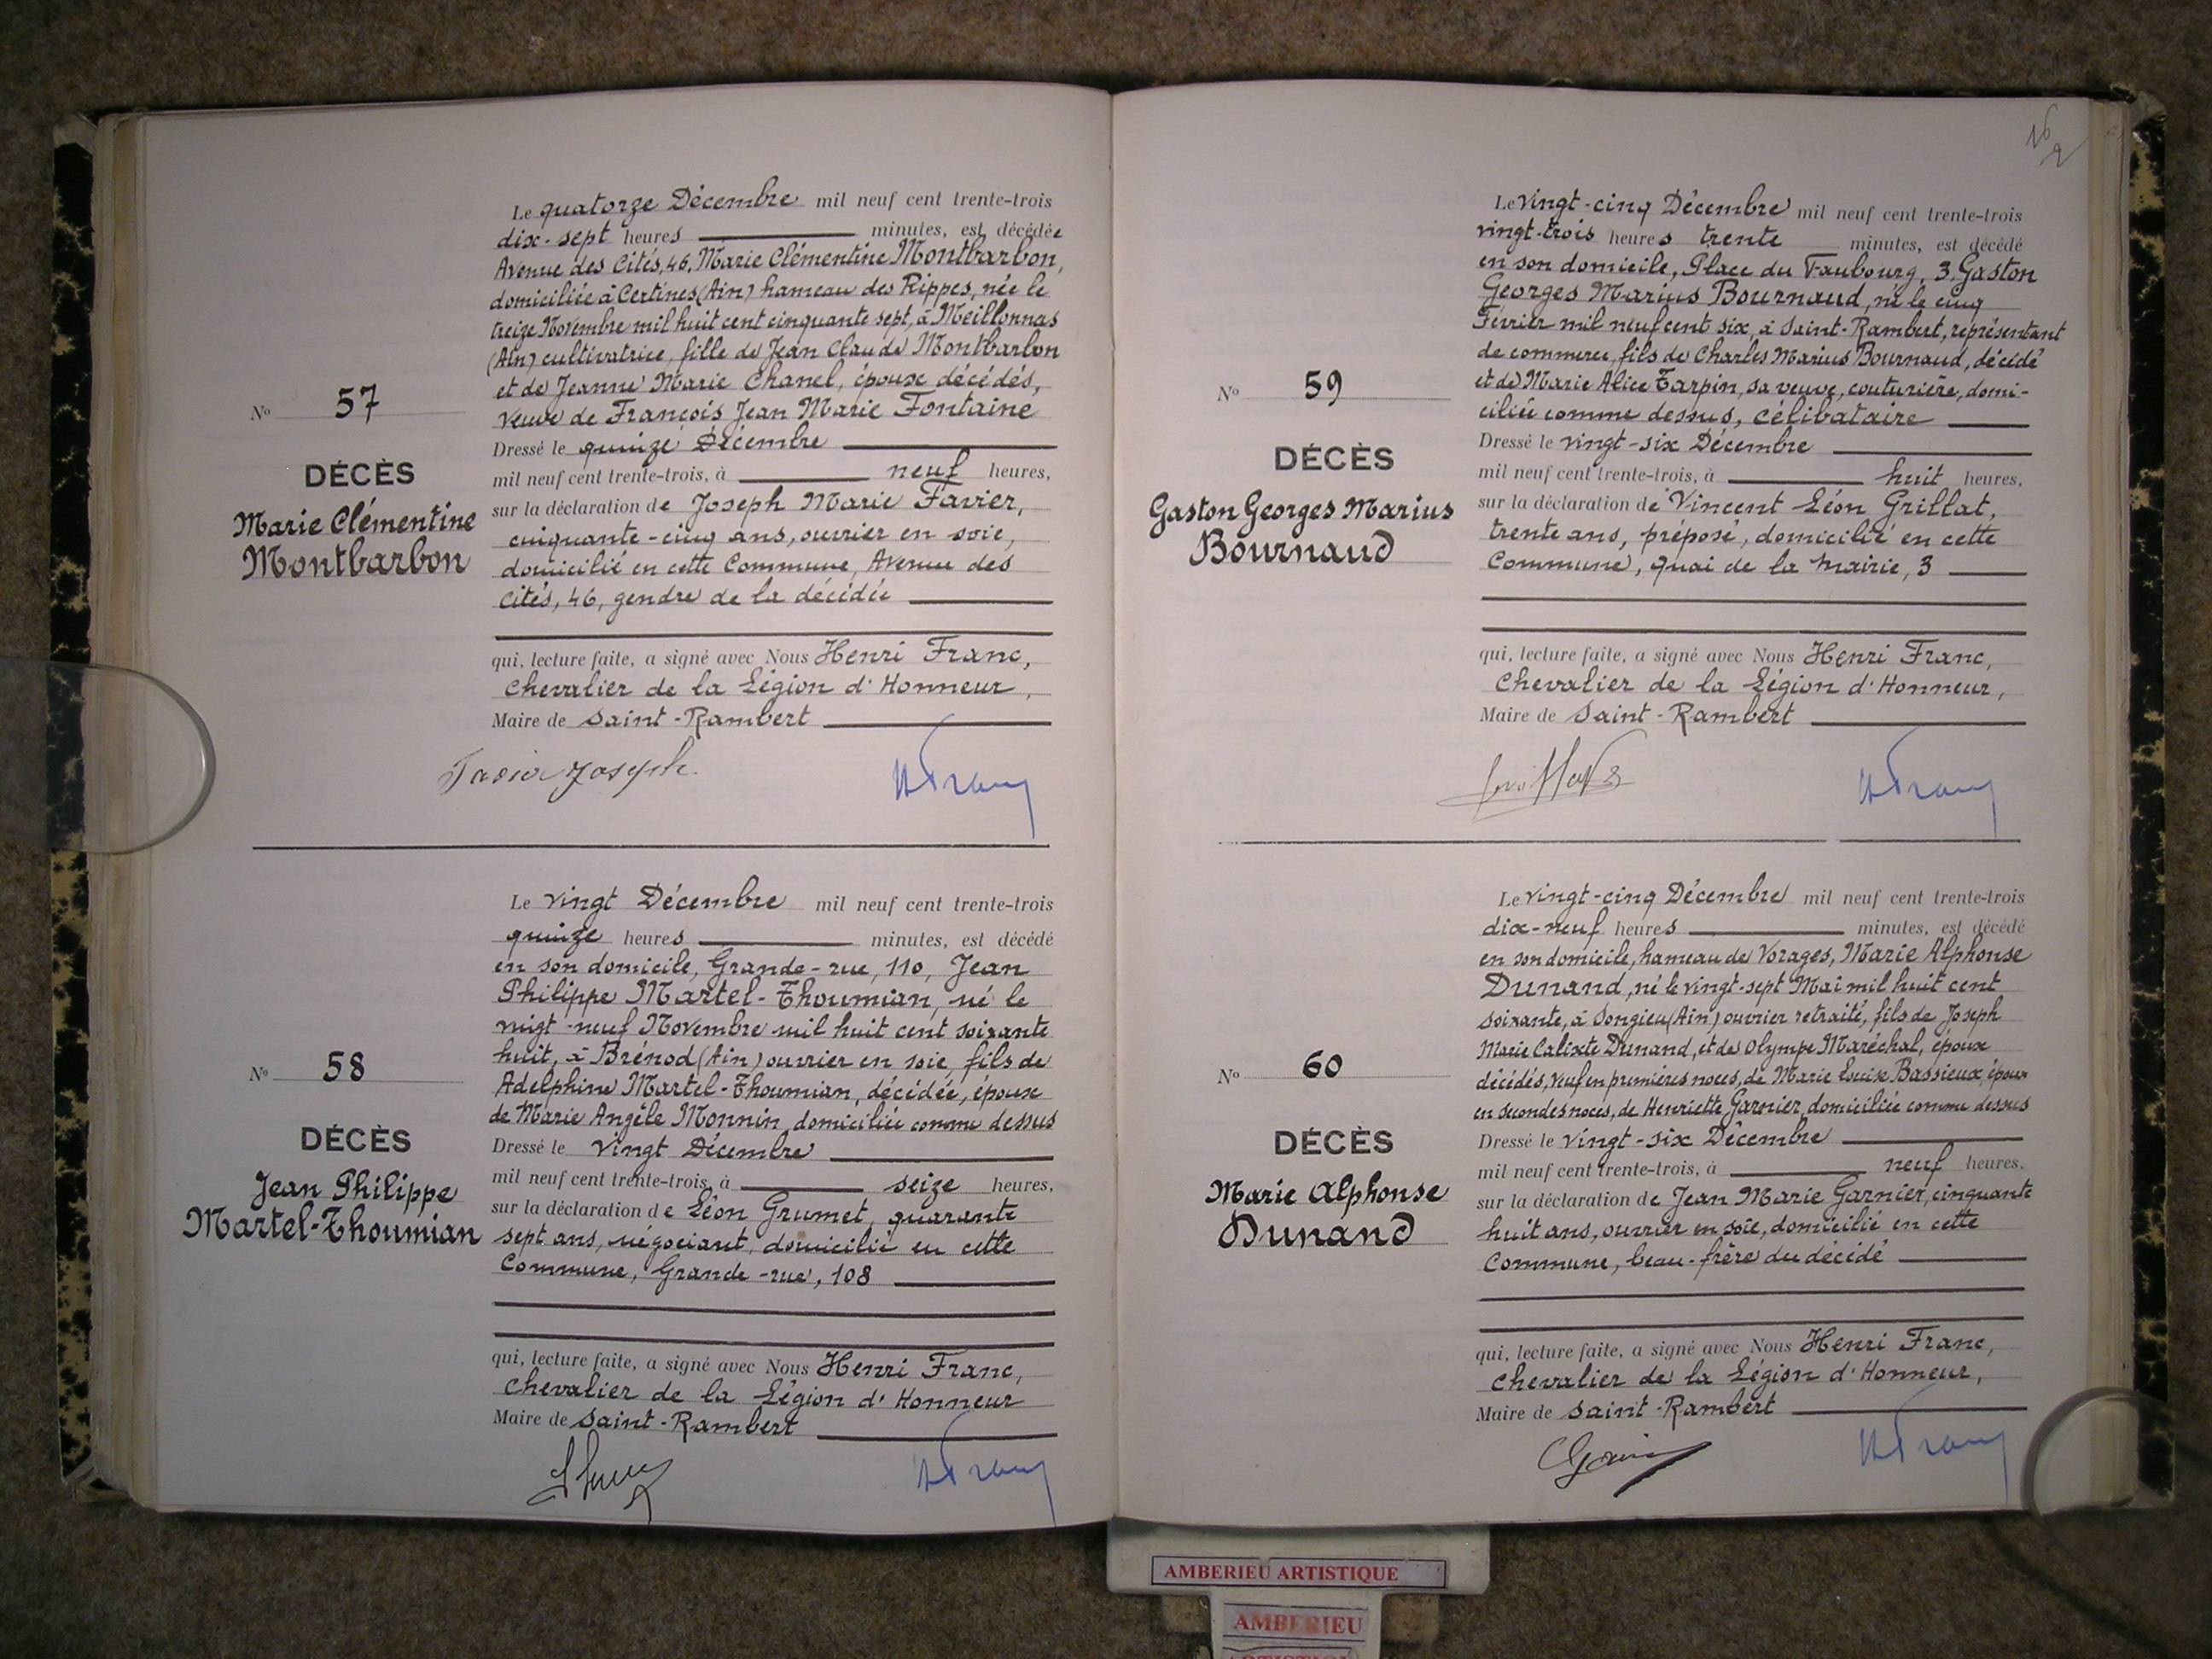 Nº 57
DÉCÈS
Marie Clémentine
Montbarbon
Le quatorze Décembre mil neuf cent trente-trois
dix-sept heures minutes, est décédée
Avenue des Cités, 46, Marie Clémentine Montbarbon,
domiciliée à Certines (Ain) hameau des Rippes, née le
treize Novembre mil huit cent cinquante sept, à Meillonnas
(Ain) cultivatrice, fille de Jean Claude Montbarbon
et de Jeanne Marie Chanel, époux décédés,
veuve de François Jean Marie Fontaine
Dressé le quinze Décembre
mil neuf cent trente-trois, à neuf heures,
sur la déclaration de Joseph Marie Favier,
cinquante-cinq ans, ouvrier en soie,
domicilié en cette Commune, Avenue des
Cités, 46, gendre de la décédée
qui, lecture faite, a signé avec Nous Henri Franc,
Chevalier de la Légion d'Honneur,
Maire de Saint-Rambert
Favier Joseph
HFranc
Nº 58
DÉCÈS
Jean Philippe
Martel-Thoumian
Le vingt Décembre mil neuf cent trente-trois
quinze heures minutes, est décédé
en son domicile, Grande-rue, 110, Jean
Philippe Martel-Thoumian, né le
vingt-neuf Novembre mil huit cent soixante
huit, à Brénod (Ain) ouvrier en soie, fils de
Adelphine Martel-Thoumian, décédée, époux
de Marie Angèle Monnin, domiciliée comme dessus
Dressé le vingt Décembre
mil neuf cent trente-trois, à seize heures,
sur la déclaration de Léon Grumet, quarante
sept ans, négociant, domicilié en cette
Commune, Grande-rue, 108
qui, lecture faite, a signé avec Nous Henri Franc,
Chevalier de la Légion d'Honneur
Maire de Saint-Rambert
HFranc
Nº 59
DÉCÈS
Gaston Georges Marius
Bournaud
Le vingt-cinq Décembre mil neuf cent trente-trois
vingt-trois heures trente minutes, est décédé
en son domicile, Place du Faubourg, 3, Gaston
Georges Marius Bournaud, né le cinq
Février mil neuf cent six, à Saint-Rambert, représentant
de commerce, fils de Charles Marius Bournaud, décédé
et de Marie Alice Tarpin, sa veuve, couturière, domi-
ciliée comme dessus, célibataire
Dressé le vingt-six Décembre
mil neuf cent trente-trois, à huit heures,
sur la déclaration de Vincent Léon Grillat,
trente ans, préposé, domicilié en cette
Commune, quai de la Mairie, 3
qui, lecture faite, a signé avec Nous Henri Franc,
Chevalier de la Légion d'Honneur,
Maire de Saint-Rambert
HFranc
Nº 60
DÉCÈS
Marie Alphonse
Dunand
Le vingt-cinq Décembre mil neuf cent trente-trois
dix-neuf heures minutes, est décédé
en son domicile, hameau de Vorages, Marie Alphonse
Dunand, né le vingt-sept Mai mil huit cent
soixante, à Songieu (Ain) ouvrier retraité, fils de Joseph
Marie Calixte Dunand, et de Olympe Maréchal, époux
décédés, veuf en premières noces, de Marie Louise Bassieux, époux
en secondes noces, de Henriette Garnier, domiciliée comme dessus
Dressé le vingt-six Décembre
mil neuf cent trente-trois, à neuf heures,
sur la déclaration de Jean Marie Garnier, cinquante
huit ans, ouvrier en soie, domicilié en cette
Commune, beau-frère du décédé
qui, lecture faite, a signé avec Nous Henri Franc,
Chevalier de la Légion d'Honneur,
Maire de Saint-Rambert
HFranc
AMBERIEU ARTISTIQUE
AMBERIEU
ARTISTIQUE